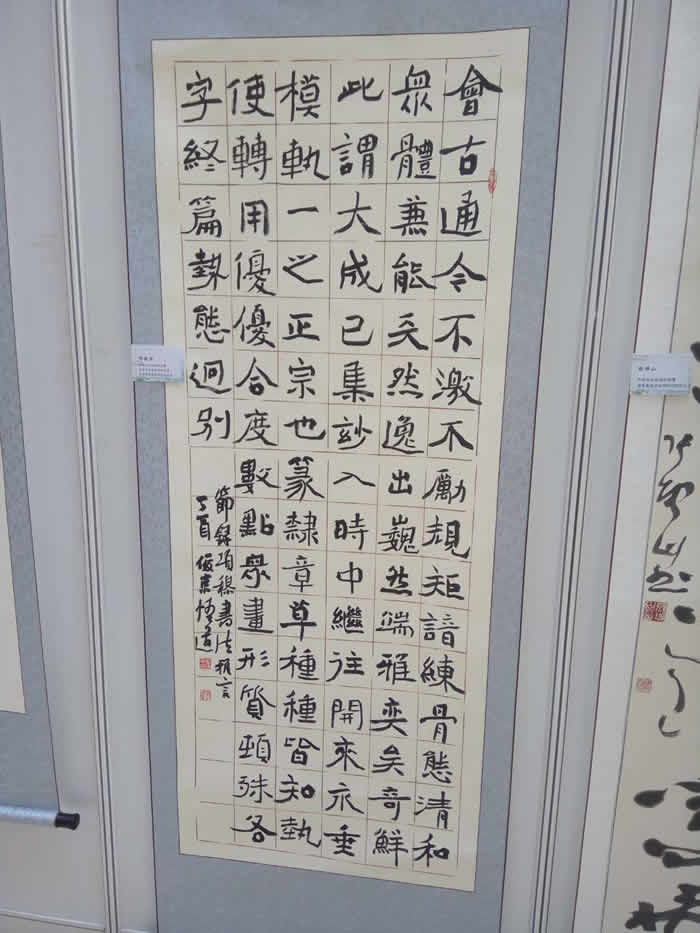 會古通今不激不勵規矩諳練骨態清和
眾體兼能天然逸出巍然端雅奕矣奇鮮
此謂大成已集玅入時中繼往開來永垂
模軌一之正宗也篆隸章草種種皆知執
使轉用優優合度數點眾畫形質頓殊各
字終篇勢態迥別
節錄項穆書法雅言
丁酉